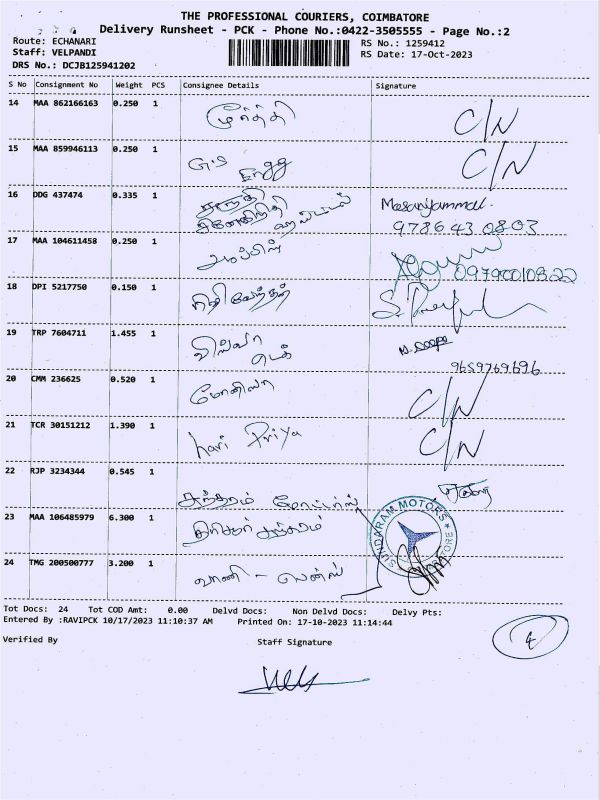 THE PROFESSIONAL COURIERS, COIMBATORE
Delivery Runsheet - PCK - Phone No.:0422-3505555 - Page No.:2
Route: ECHANARI
RS No.: 1259412
Staff: VELPANDI
RS Date: 17-Oct-2023
DRS No.: DCJB125941202
S No Consignment No Weight PCS Consignee Details Signature
14 MAA 862166163 0.250 1 மூர்த்தி C/N
15 MAA 859946113 0.250 1 G.S Engg C/N
16 DDG 437474 0.335 1 Masaniyammal.
9786430803
17 MAA 104611458 0.250 1
18 DPI 5217750 0.150 1
19 TRP 7604711 1.455 1
9659769696
20 CMM 236625 0.520 1 மோனிஷா C/N
21 TCR 30151212 1.390 1 hari Priya C/N
22 RJP 3234344 0.545 1 சுந்தரம் மோட்டார்ஸ்
23 MAA 106485979 6.300 1
SUNDARAM MOTORS
24 TMG 200500777 3.200 1 வாணி - லென்ஸ்
Tot Docs: 24 Tot COD Amt: 0.00 Delvd Docs: Non Delvd Docs: Delvy Pts:
Entered By :RAVIPCK 10/17/2023 11:10:37 AM Printed On: 17-10-2023 11:14:44
4
Verified By Staff Signature